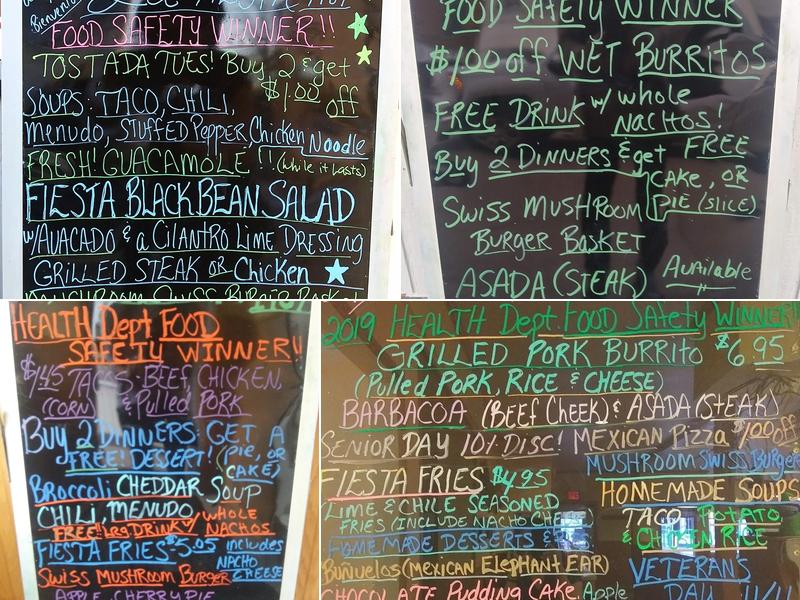 Bienvenidos
FOOD SAFETY WINNER!!
TOSTADA TUES! Buy 2 & get
$1.00 off
SOUPS: TACO, CHILI,
Menudo, STUFFED PEPPER, Chicken Noodle
FRESH! GUACAMOLE!! (while it lasts)
FIESTA BLACK BEAN SALAD
w/AVACADO & a CILANTRO LIME DRESSING
GRILLED STEAK OR Chicken
MUSHROOM SWISS BURGER BASKET
FOOD SAFETY WINNER
$1.00 off WET BURRITOS
FREE DRINK w/ whole
NACHOS!
Buy 2 DINNERS & get FREE
CAKE, OR
PIE (slice)
SWISS MUSHROOM
Burger BASKET
ASADA (STEAK) Available
HEALTH Dept FOOD
SAFETY WINNER!!
$1.45 TACOS-BEEF, CHICKEN,
(CORN) & Pulled PORK
Buy 2 DINNERS GET A
FREE! DESSERT! (pie, OR
CAKE)
Broccoli CHEDDAR SOUP
CHILI, MENUDO
FREE! Leg DRINK w/ WHOLE
NACHOS
FIESTA FRIES $5.05 includes
NACHO
CHEESE
SWISS MUSHROOM BURGER
APPLE, CHERRY PIE
2019 HEALTH Dept. FOOD SAfety WINNER!!
GRILLED PORK BURRITO $6.95
(Pulled PORK, RICE & CHEESE)
BARBACOA (BEEF CHEEK) & ASADA (STEAK)
SENIOR DAY 10% DISC! MEXICAN Pizza $1.00 off
FIESTA FRIES $4.95
MUSHROOM SWISS Burger
LIME & CHILE SEASONED
FRIES (INCLUDE NACHO CHEESE)
HOMEMADE SOUPS
TACO, POTATO,
& CHICKEN RICE
HOMEMADE DESSERTS &
Buñuelos (MEXICAN ELEPHANT EAR)
VETERANS
DAY 11/11
CHOCOLATE Pudding CAKE, Apple